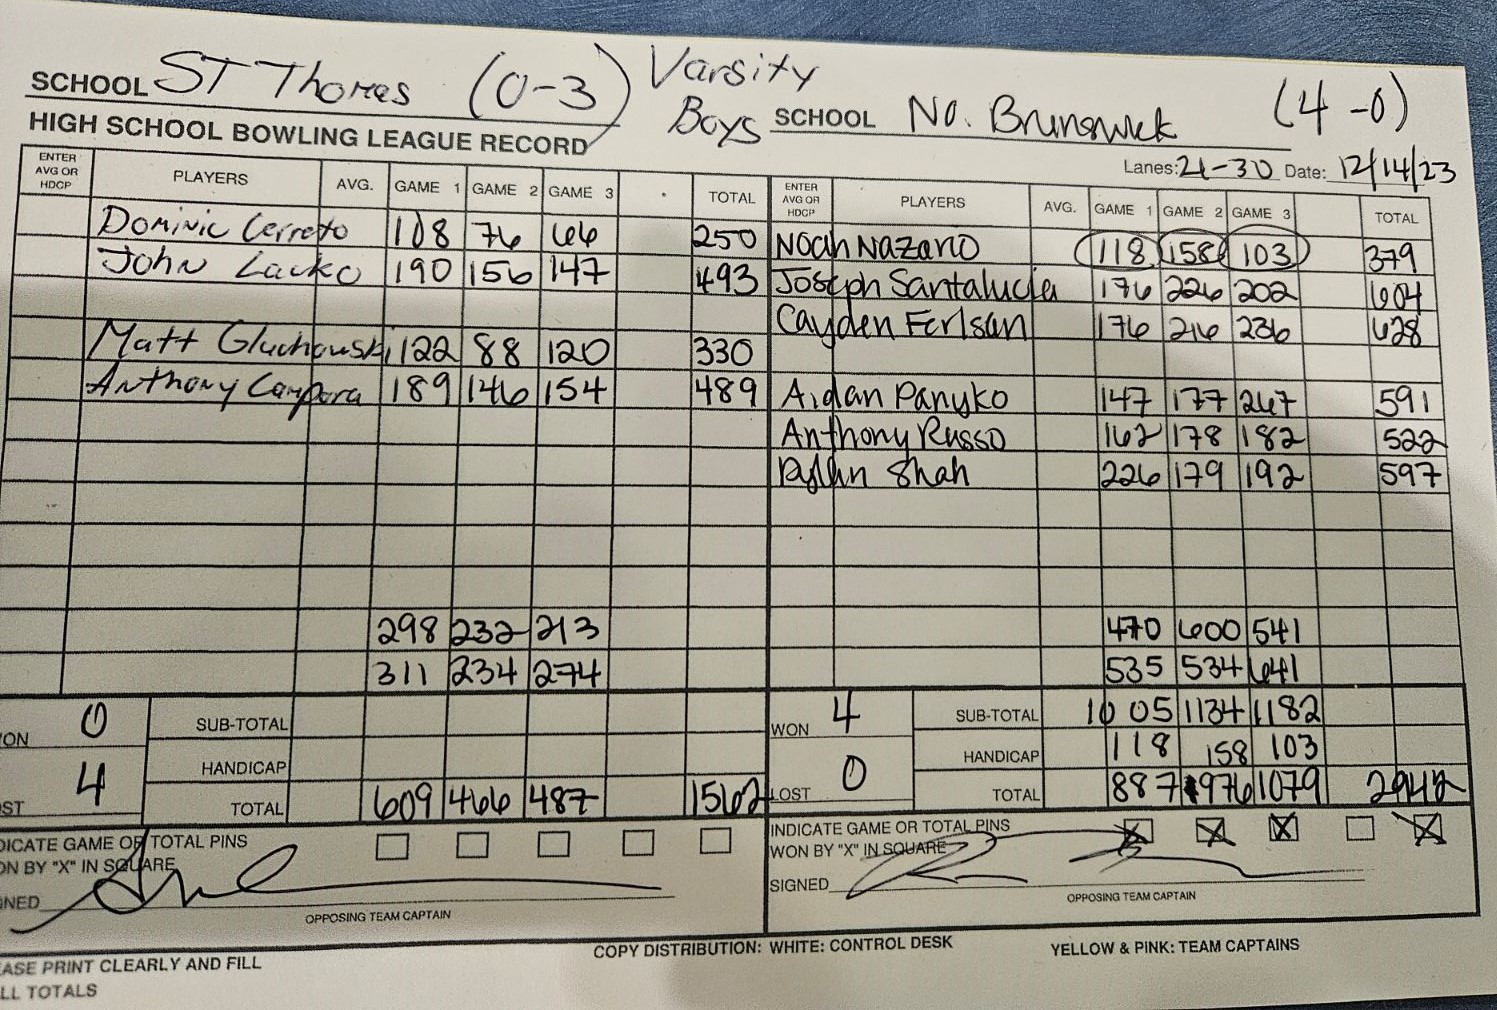 SCHOOL ST Thomas (0-3) Varsity Boys SCHOOL No. Brunswick (4-0)
HIGH SCHOOL BOWLING LEAGUE RECORD Lanes: 21-30 Date: 12/14/23
ENTER AVG OR HDCP PLAYERS AVG. GAME 1 GAME 2 GAME 3 TOTAL ENTER AVG OR HDCP PLAYERS AVG. GAME 1 GAME 2 GAME 3 TOTAL
Dominic Cerreto 108 76 66 250 Noah Nazario 118 158 103 379
John Lacko 190 156 147 493 Joseph Santalucia 176 226 202 604
Cayden 176 216 236 628
Matt Gluchowski 122 88 120 330
Anthony Campora 189 146 154 489 Aidan Panyko 147 177 267 591
Anthony Russo 162 178 182 522
Dylan Shah 226 179 192 597
298 232 213 470 600 541
311 234 274 535 534 641
ON 0 SUB-TOTAL WON 4 SUB-TOTAL 1005 1134 1182
HANDICAP HANDICAP 118 158 103
ST 4 TOTAL 609 466 487 1562 LOST 0 TOTAL 887 976 1079 2942
DICATE GAME OR TOTAL PINS INDICATE GAME OR TOTAL PINS
ON BY "X" IN SQUARE WON BY "X" IN SQUARE
NED SIGNED
OPPOSING TEAM CAPTAIN OPPOSING TEAM CAPTAIN
COPY DISTRIBUTION: WHITE: CONTROL DESK YELLOW & PINK: TEAM CAPTAINS
ASE PRINT CLEARLY AND FILL
LL TOTALS